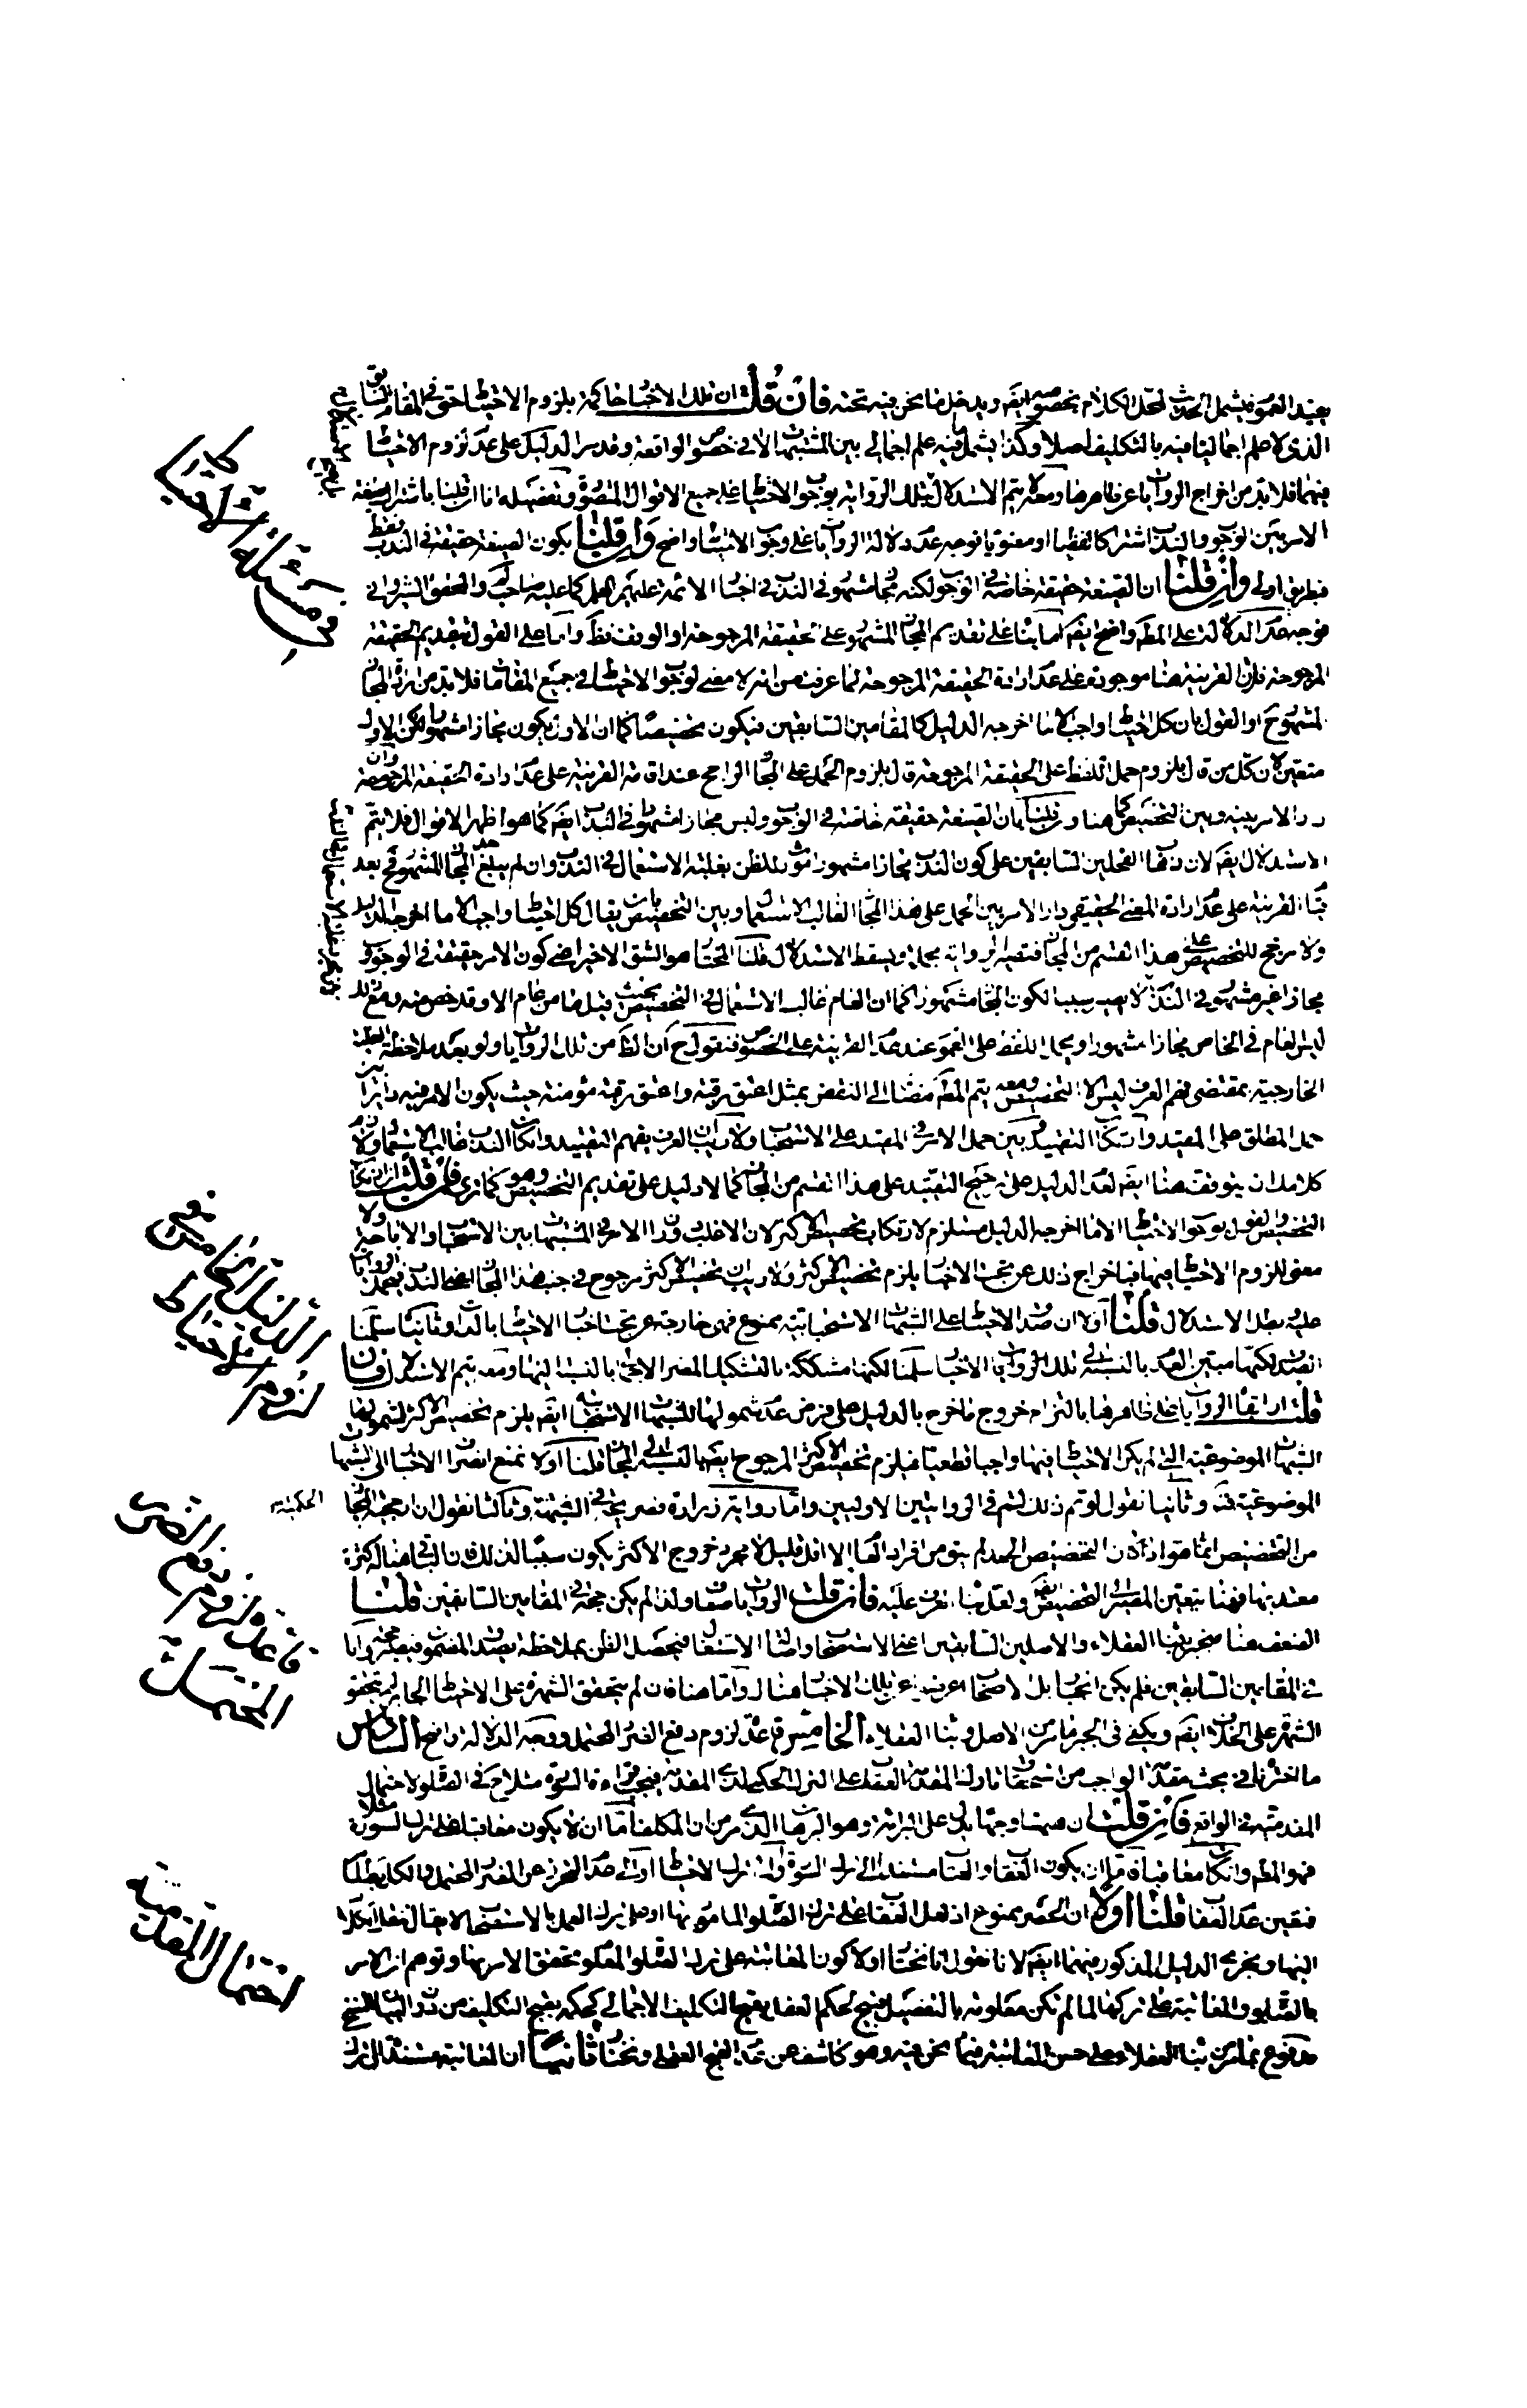 يفيد العموم فيشمل الحديث لمحل الكلام بخصوصه ايضا ويدخل ما نحن فيه تحته فان قلت ان تلك الاخبار حاكمة بلزوم الاحتياط حتى في المقام السابق
الذي لا علم اجماليا فيه بالتكليف اصلا وكذا يشمل ما فيه علم اجمالي بين المشتبهات لا في خصوص الواقعة وقد مر الدليل على عدم لزوم الاحتياط
فيهما فلا بد من اخراج الروايات عن ظاهرها ومعه لا يتم الاستدلال بتلك الرواية بوجوب الاحتياط على جميع الاقوال المتصورة وتفصيله انا ان قلنا باشتراك صيغة
الامر بين الوجوب والندب اشتراكا لفظيا او معنويا فوجه عدم دلالة الروايات على وجوب الاحتياط واضح وان قلنا بكون الصيغة حقيقة في الندب فقط
فبطريق اولى وان قلنا ان الصيغة حقيقة خاصة في الوجوب لكنه مجاز مشهور في الندب في اخبار الائمة عليهم السلم كما عليه صاحب لم والمحقق الشيرواني
فوجه عدم الدلالة على المط واضح ايضا اما بناء على تقديم المجاز المشهور على الحقيقة المرجوحة او الوقف فظ واما على القول بتقديم الحقيقة
المرجوحة فلان القرينة هنا موجودة على عدم ارادة الحقيقة المرجوحة لما عرفت من انه لا معنى لوجوب الاحتياط في جميع المقامات فلا بد من ارادة المجاز
المشهور ح او القول بان كل احتياط واجب الا ما اخرجه الدليل كالمقامين السابقين فيكون تخصيصا كما ان الاول يكون مجازا مشهورا لكن الاول
متعين لان كل من قال بلزوم حمل اللفظ على الحقيقة المرجوحة قال بلزوم الحمل على المجاز الراجح عند اقامة القرينة على عدم ارادة الحقيقة المرجوحة وان
دار الامر بينه وبين التخصيص كما هنا وان قلنا بان الصيغة حقيقة خاصة في الوجوب وليس مجازا مشهورا في الندب ايضا كما هو اظهر الاقوال فلا يتم
الاستدلال ايضا لان ذهاب الفحلين السابقين على كون الندب مجازا مشهورا مورث للظن بغلبة الاستعمال في الندب وان لم يبلغ حد المجاز المشهور فح بعد
قيام القرينة على عدم ارادة المعنى الحقيقي دار الامر بين الحمل على هذا المجاز الغالب الاستعمال وبين التخصيص بان يقال كل احتياط واجب الا ما اخرجه الدليل
ولا مرجح للتخصيص على هذا القسم من المجاز فتصير الرواية مجملة ويسقط الاستدلال قلنا المختار هو الشق الاخير اعنى كون الامر حقيقة في الوجوب و
مجازا غير مشهور في الندب لا يصير سببا لكون المجاز مشهورا كما ان العام غالب الاستعمال في التخصيص بحيث قيل ما من عام الا وقد خص منه ومع ذلك
ليس العام في الخاص مجازا مشهورا ويحمل اللفظ على العموم عند عدم القرينة على الخصوص فنقول ح ان الظ من تلك الروايات ولو بعد ملاحظة القرينة
الخارجية بمقتضى فهم العرف ليس الا التخصيص ومعه يتم المط مضافا الى النقض بمثل اعتق رقبة واعتق رقبة مؤمنة حيث يكون الامر فيه دائرا بين
حمل المطلق على المقيد وارتكاب التقييد وبين حمل الامر في المقيد على الاستحباب ولا ريب ان العرف يفهم التقييد وان كان الندب غالب الاستعمال ولا
كلام ان يتوقف هنا ايضا لعدم الدليل على ترجيح التقييد على هذا القسم من المجاز كما لا دليل على تقديم التخصيص وهو كما ترى فان قلت ان ارتكاب
التخصيص والقول بوجوب الاحتياط الا ما اخرجه الدليل مستلزم لارتكاب تخصيص الاكثر لان الاغلب دوران الامر في المشتبهات بين الاستحباب والاباحة ولا
معنى للزوم الاحتياط فيها فباخراج ذلك عن تحت الاخبار يلزم تخصيص الاكثر ولا ريب ان تخصيص الاكثر مرجوح في جنب هذا المجاز اعنى الندب فبحمل الروايات
عليه بطل الاستدلال قلنا اولا ان صدق الاحتياط على الشبهات الاستحبابية ممنوع فهي خارجة عن تحت اخبار الاحتياط بالذات وثانيا سلمنا
الصدق لكنها مبين العدم بالنسبة الى تلك الروايات الاخبار سلمنا لكنها مشككة بالتشكيك المضر الاجمالي بالنسبة اليها ومعه يتم الاستدلال فان
قلت ان ابقاء الروايات على ظاهرها بالتزام خروج ما خرج بالدليل على فرض عدم شمولها للشبهات الاستحبابية ايضا يلزم تخصيص الاكثر لشمولها
الشبهات الموضوعية التي لم يكن الاحتياط فيها واجبا قطعيا فيلزم تخصيص الاكثر المرجوح ايضا بالنسبة الى المجاز قلنا اولا نمنع انصراف الاخبار الى الشبهات
الموضوعية وثانيا نقول لو تم ذلك لتم في الروايتين الاوليين واما رواية زرارة فصريح في الشبهة الحكمية وثالثا نقول ان ارجحية المجاز
من التخصيص انما هو اذا كان التخصيص الى حد لم يبق من افراد العام الا اقل قليل لا مجرد خروج الاكثر يكون سببا لذلك فان الباقي هنا له كثرة
معتد بها فهنا يتعين المصير الى التخصيص ايضا ولعل بناء العرف عليه فان قلت الروايات ضعاف ولذا لم يكن حجة في المقامين السابقين قلنا
الضعف هنا منجبر ببناء العقلاء والاصلين السابقين اعنى الاستصحاب واصالة الاشتغال فيحصل الظن بملاحظة بصدق المضمون فيصير حجة واما
في المقامين السابقين فلم يكن انجبار بل لاصحابنا اعراض عن تلك الاخبار هناك واما هنا فان لم يتحقق الشهرة على الاحتياط الجابر لم يتحقق
الشهرة على الخلاف ايضا ويكفي في الجبر ما مر من الاصل وبناء العقلاء الخامس قاعدة لزوم دفع الضرر المحتمل ووجه الدلالة واضح السادس
ما اخترناه في بحث مقدمة الواجب من استحقاق تارك المقدمة العقاب على الترك الحكمي لذي المقدمة فيجب قراءة السورة مثلا ح في الصلوة لاحتمال
المقدمية في الواقع فان قلت ان هيهنا وجها يدل على البراءة وهو البرهان الذي مر من ان المكلف اما ان لا يكون معاقبا على ترك السورة مثلا
فهو المط وان كان معاقبا فاما ان يكون العقاب والعتاب مستندا الى ترك السورة او الى ترك الاحتياط او الى عدم التحرز عن الضرر المحتمل والكل باطل كما
فتعين عدم العقاب قلنا اولا ان الحصر ممنوع اذ لعل العقاب على ترك الصلوة المامور بها او على ترك العمل بالاستصحاب
اليها ويجري الدليل المذكور فيهما ايضا لانا نقول انا نختار اولا كون المعاقبة على ترك الصلوة المعلوم تحقق الامر بها وتوهم ان الامر
بالصلوة والمعاقبة على تركها لما لم تكن معلومة بالتفصيل قبيح لحكم العقل بقبح التكليف الاجمالي كحكمه بقبح التكليف من دون البيان
مدفوع بما مر من بناء العقلاء وعلى حسن المعاقبة فيما نحن فيه وهو كاشف عن عدم القبح العقلي ونختار ثانيا ان المعاقبة مستند الى ترك
كلام في مسئلة الاحتياط
الدليل الخامس في لزوم الاحتياط
قاعدة لزوم دفع الضرر المحتمل
احتمال المقدمية